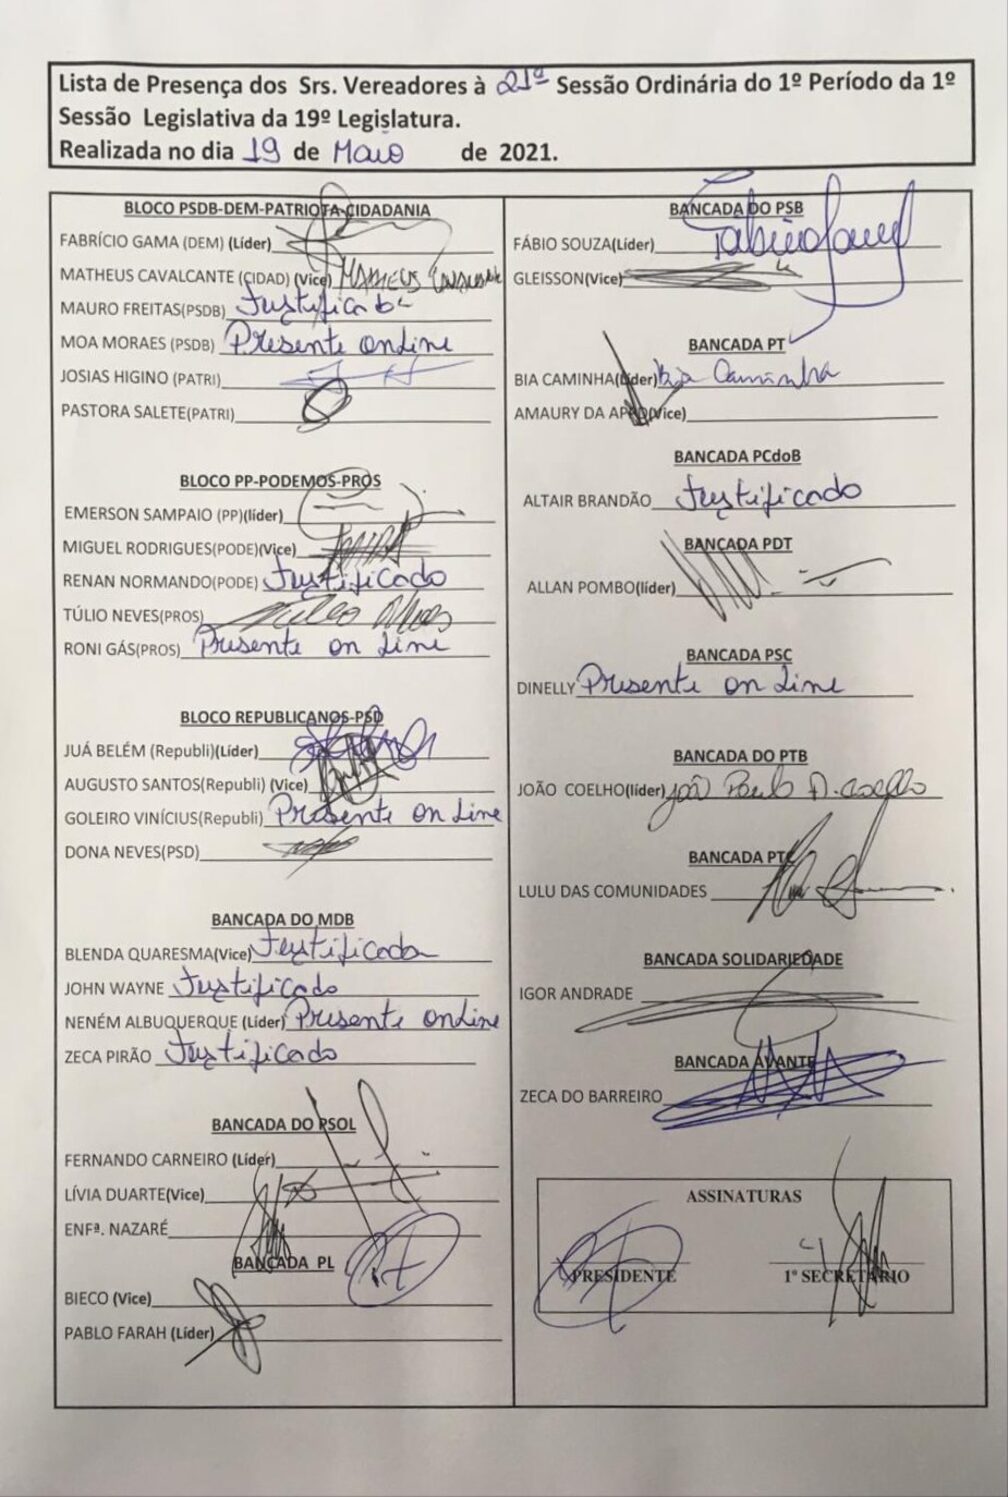 Lista de Presença dos Srs. Vereadores à 21ª Sessão Ordinária do 1º Período da 1º
Sessão Legislativa da 19º Legislatura.
Realizada no dia 19 de Maio de 2021.
BLOCO PSDB-DEM-PATRIOTA-CIDADANIA
FABRÍCIO GAMA (DEM) (Líder)
MATHEUS CAVALCANTE (CIDAD) (Vice) MATHEUS Cavalcante
MAURO FREITAS(PSDB) Justificado
MOA MORAES (PSDB) Presente online
JOSIAS HIGINO (PATRI)
PASTORA SALETE(PATRI)
BLOCO PP-PODEMOS-PROS
EMERSON SAMPAIO (PP)(líder)
MIGUEL RODRIGUES(PODE)(Vice)
RENAN NORMANDO(PODE) Justificado
TÚLIO NEVES(PROS) Túlio Neves
RONI GÁS(PROS) Presente on Line
BLOCO REPUBLICANOS-PSD
JUÁ BELÉM (Republi)(Líder)
AUGUSTO SANTOS(Republi) (Vice)
GOLEIRO VINÍCIUS(Republi) Presente on Line
DONA NEVES(PSD)
BANCADA DO MDB
BLENDA QUARESMA(Vice) Justificada
JOHN WAYNE Justificado
NENÉM ALBUQUERQUE (Líder) Presente online
ZECA PIRÃO Justificado
BANCADA DO PSOL
FERNANDO CARNEIRO (Líder)
LÍVIA DUARTE(Vice)
ENFª. NAZARÉ
BANCADA PL
BIECO (Vice)
PABLO FARAH (Líder)
BANCADA DO PSB
FÁBIO SOUZA(Líder) Fabio Souza
GLEISSON(Vice)
BANCADA PT
BIA CAMINHA(Líder) Bia Caminha
AMAURY DA APPD(Vice)
BANCADA PCdoB
ALTAIR BRANDÃO Justificado
BANCADA PDT
ALLAN POMBO(líder)
BANCADA PSC
DINELLY Presente on Line
BANCADA DO PTB
JOÃO COELHO(líder) João Paulo A. Coelho
BANCADA PTC
LULU DAS COMUNIDADES
BANCADA SOLIDARIEDADE
IGOR ANDRADE
BANCADA AVANTE
ZECA DO BARREIRO
ASSINATURAS
PRESIDENTE 1º SECRETÁRIO